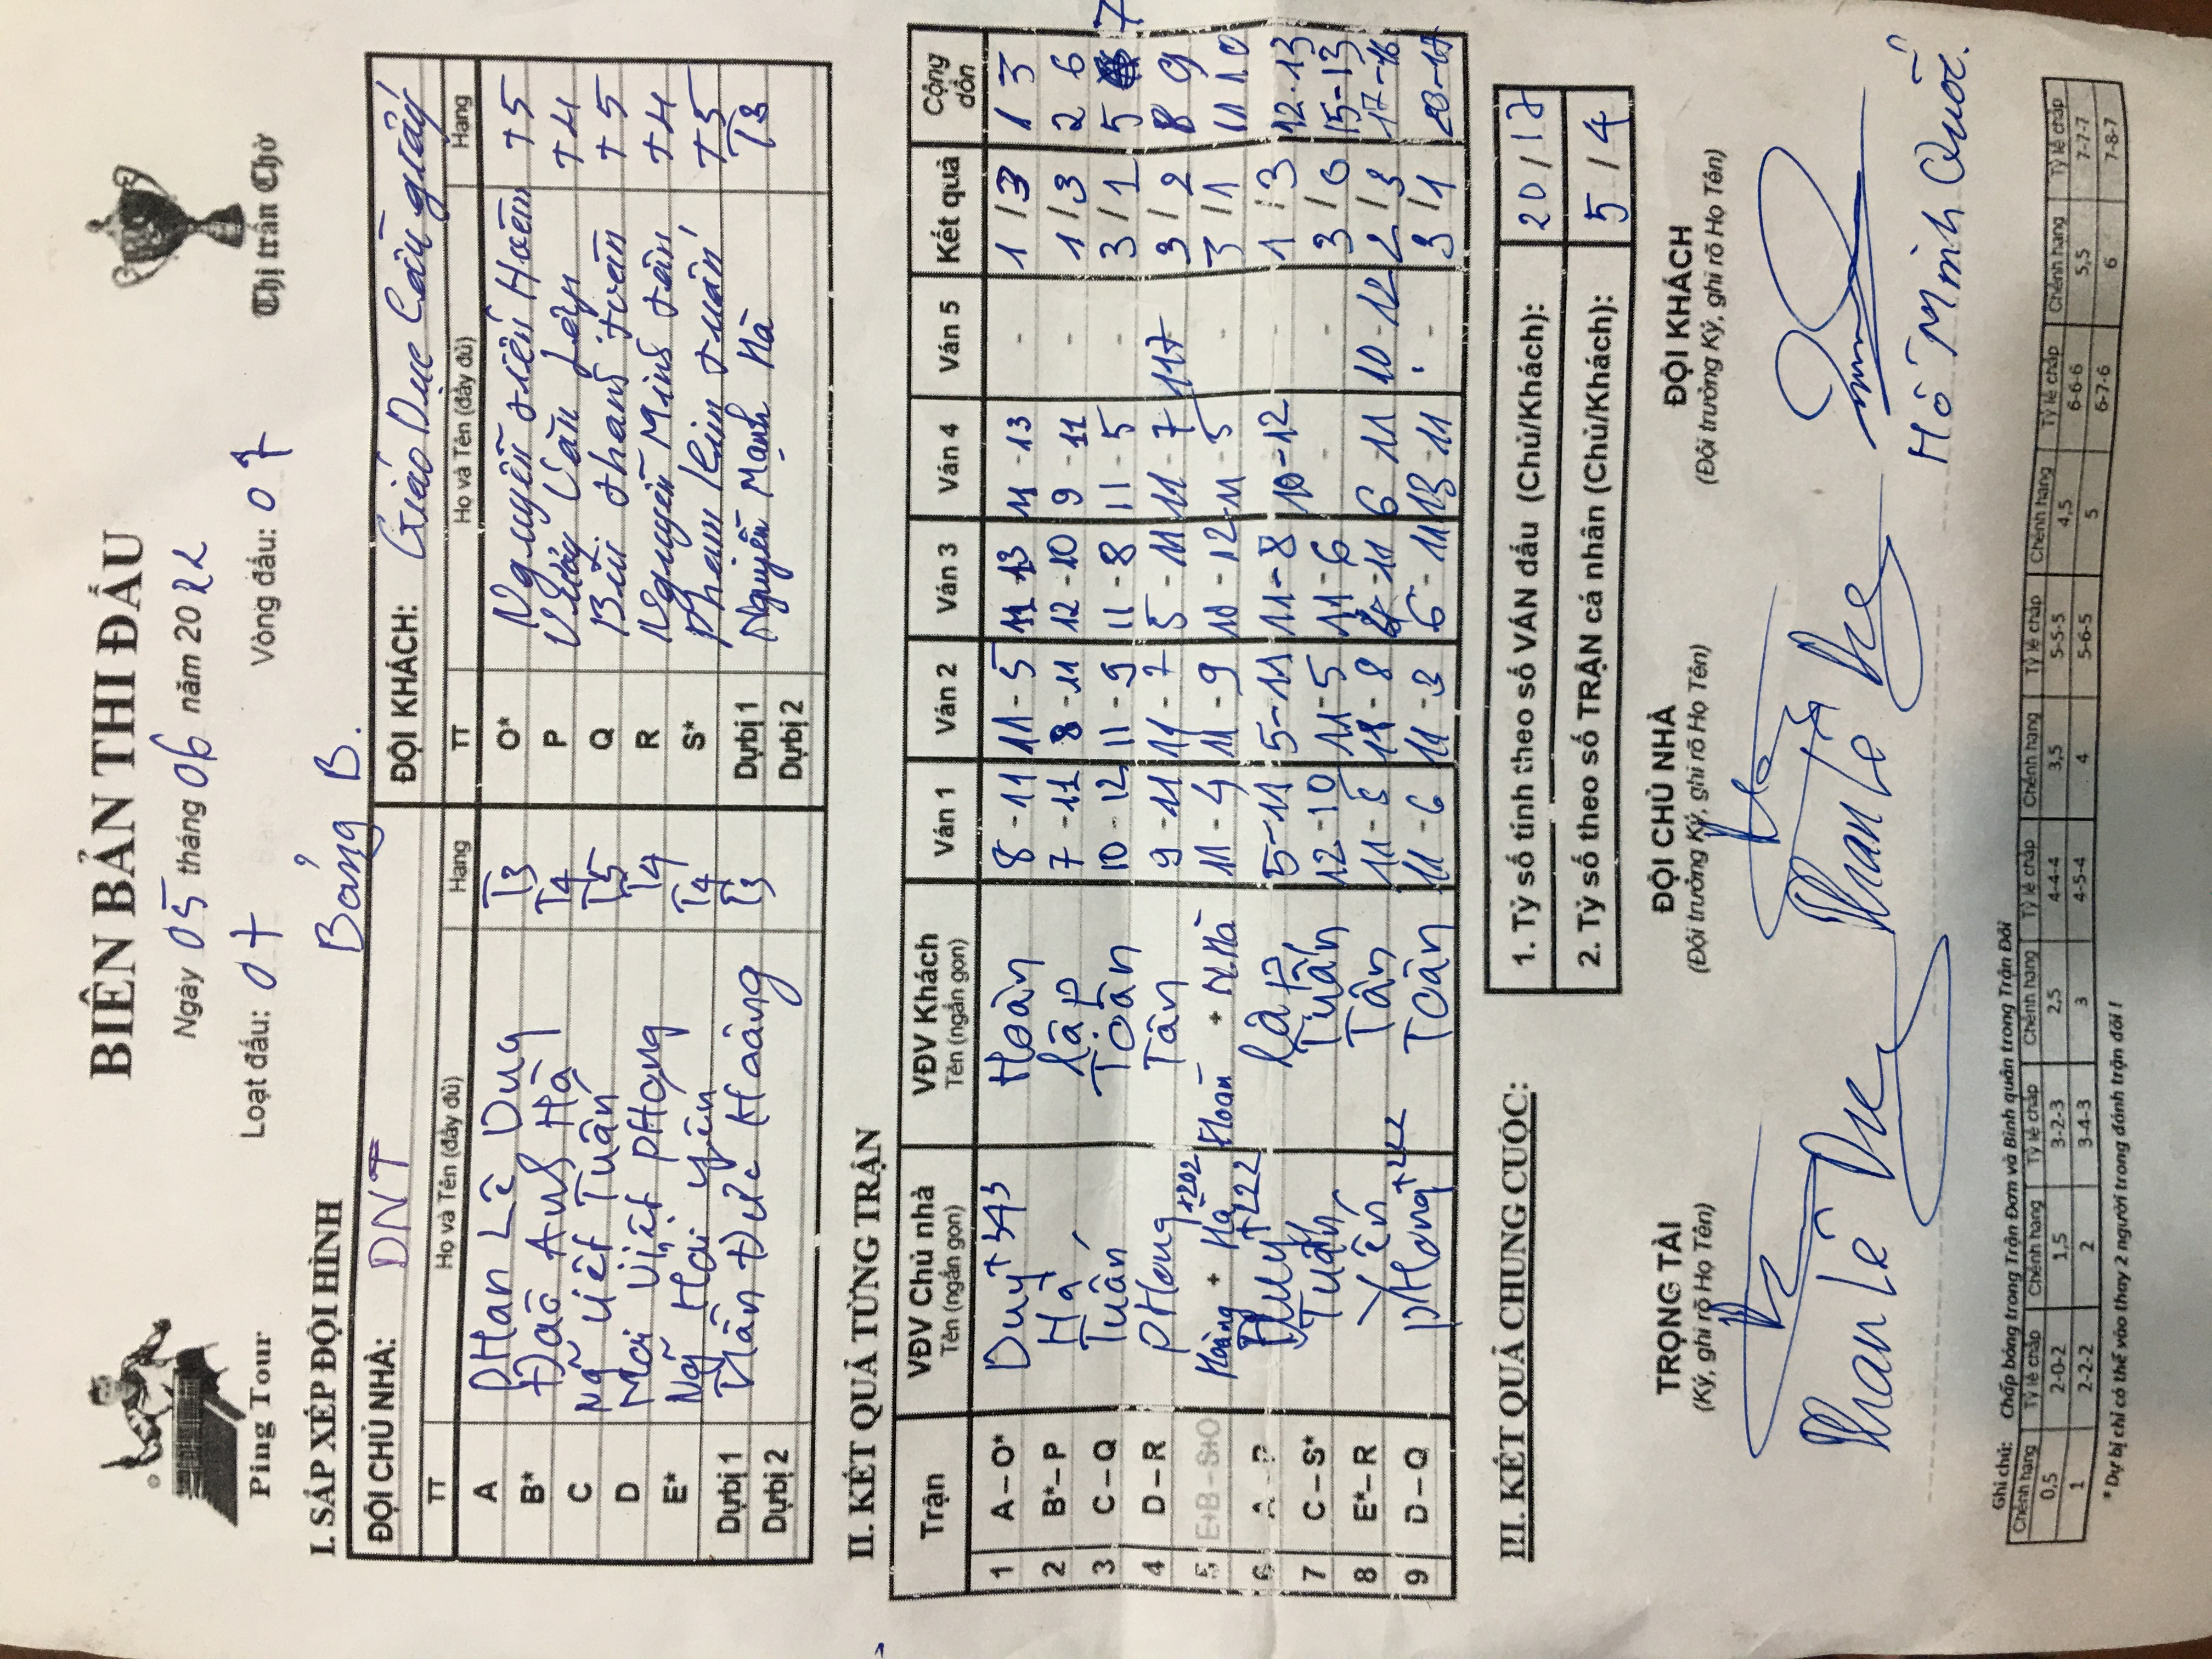 BIÊN BẢN THI ĐẤU
Ngày 05 tháng 06 năm 2022
Loạt đấu: 07 Vòng đấu: 07
Ping Tour
Thị trấn Chờ
Bảng B.
I. SẮP XẾP ĐỘI HÌNH
ĐỘI CHỦ NHÀ: DNT ĐỘI KHÁCH: Giáo Dục Cầu giấy
TT Họ và Tên (đầy đủ) Hạng TT Họ và Tên (đầy đủ) Hạng
A PHan Lê Duy T3 O* Nguyễn Hoàn T5
B* Đào Anh Hà T4 P Vương Văn Lập T4
C Ng Viết Tuấn T5 Q Bùi thanh toàn T5
D Mai Việt PHong T4 R Nguyễn Minh tân T4
E* Ng Hải Yên T4 S* Phạm Kim tuấn T5
Dự bị 1 Trần Đức Hoàng T3 Dự bị 1 Nguyễn Mạnh Hà T3
Dự bị 2 Dự bị 2
II. KẾT QUẢ TỪNG TRẬN
Trận VĐV Chủ nhà Tên (ngắn gọn) VĐV Khách Tên (ngắn gọn) Ván 1 Ván 2 Ván 3 Ván 4 Ván 5 Kết quả Cộng dồn
1 A – O* Duy +343 Hoàn 8 - 11 11 - 5 11 - 13 11 - 13 - 1 / 3 1 3
2 B* – P Hà Lập 7 - 11 8 - 11 12 - 10 9 - 11 - 1 / 3 2 6
3 C – Q Tuấn Toàn 10 - 12 11 - 9 11 - 8 11 - 5 - 3 / 1 5 7
4 D – R PHong Tân 9 - 11 11 - 7 5 - 11 11 - 7 11 7 3 / 2 8 9
5 E+B – S+O Hoàng + Hà +202 Hoàn + N.Hà 11 - 4 11 - 9 10 - 12 11 - 5 3 / 1 11 10
6 A – P Duy +222 Lập 5 - 11 5 - 11 11 - 8 10 - 12 - 1 / 3 12 - 13
7 C – S* Tuấn Tuấn 12 - 10 11 - 5 11 - 6 - - 3 / 0 15 - 13
8 E* – R Yên Tân 11 - 5 - 8 - 11 6 - 11 10 - 12 2 / 3 17 - 16
9 D – Q PHong +222 Toàn 11 - 6 11 - 3 6 - 11 13 - 11 - 3 / 1 20 - 17
III. KẾT QUẢ CHUNG CUỘC:
1. Tỷ số tính theo số VÁN đấu (Chủ/Khách): 20 / 17
2. Tỷ số theo số TRẬN cá nhân (Chủ/Khách): 5 / 4
TRỌNG TÀI ĐỘI CHỦ NHÀ ĐỘI KHÁCH
(Ký, ghi rõ Họ Tên) (Đội trưởng Ký, ghi rõ Họ Tên) (Đội trưởng Ký, ghi rõ Họ Tên)
Phan Lê Duy Phan Lê Duy Hồ Minh Quốc.
Ghi chú: Chấp bóng trong Trận Đơn và Bình quân trong Trận Đôi
Chênh hạng Tỷ lệ chấp Chênh hạng Tỷ lệ chấp Chênh hạng Tỷ lệ chấp Chênh hạng Tỷ lệ chấp Chênh hạng Tỷ lệ chấp Chênh hạng Tỷ lệ chấp
0,5 2-0-2 1,5 3-2-3 2,5 4-4-4 3,5 5-5-5 4,5 6-6-6 5,5 7-7-7
1 2-2-2 2 3-4-3 3 4-5-4 4 5-6-5 5 6-7-6 6 7-8-7
* Dự bị chỉ có thể vào thay 2 người trong đánh trận đôi !